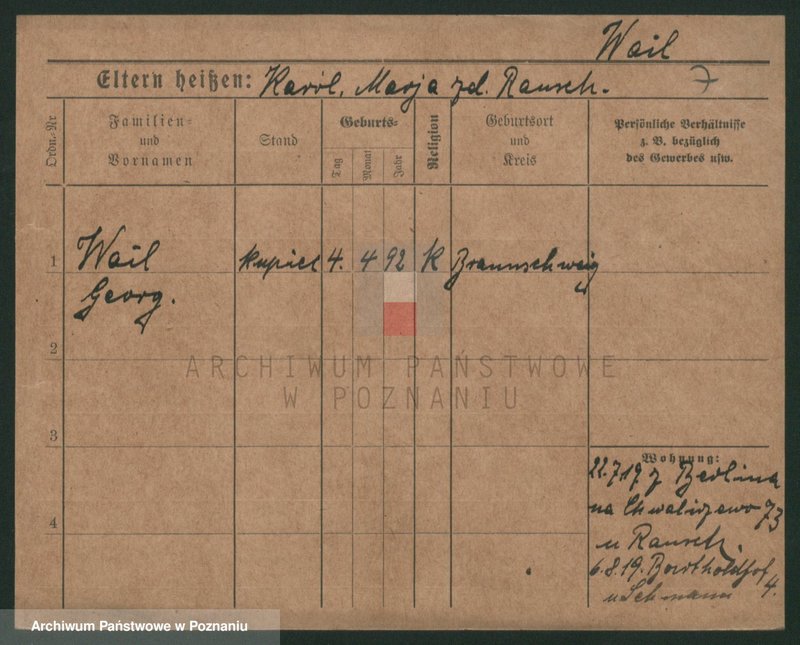 Wail
Eltern heißen: Karol, Marja zd. Rausch.
Ordn.-Nr
Familien- und Vornamen
Stand
Geburts-
Tag
Monat
Jahr
Religion
Geburtsort und Kreis
Persönliche Verhältnisse z. B. bezüglich des Gewerbes usw.
1 Wail kupiec 4. 4 92 K Braunschweig
Georg.
2
ARCHIWUM PAŃSTWOWE
W POZNANIU
3
Wohnung:
22.7.19 z Berlina
na Chwaliszewo 73
u Rausch
4
6.8.19. Bertholdhof
4.
Archiwum Państwowe w Poznaniu